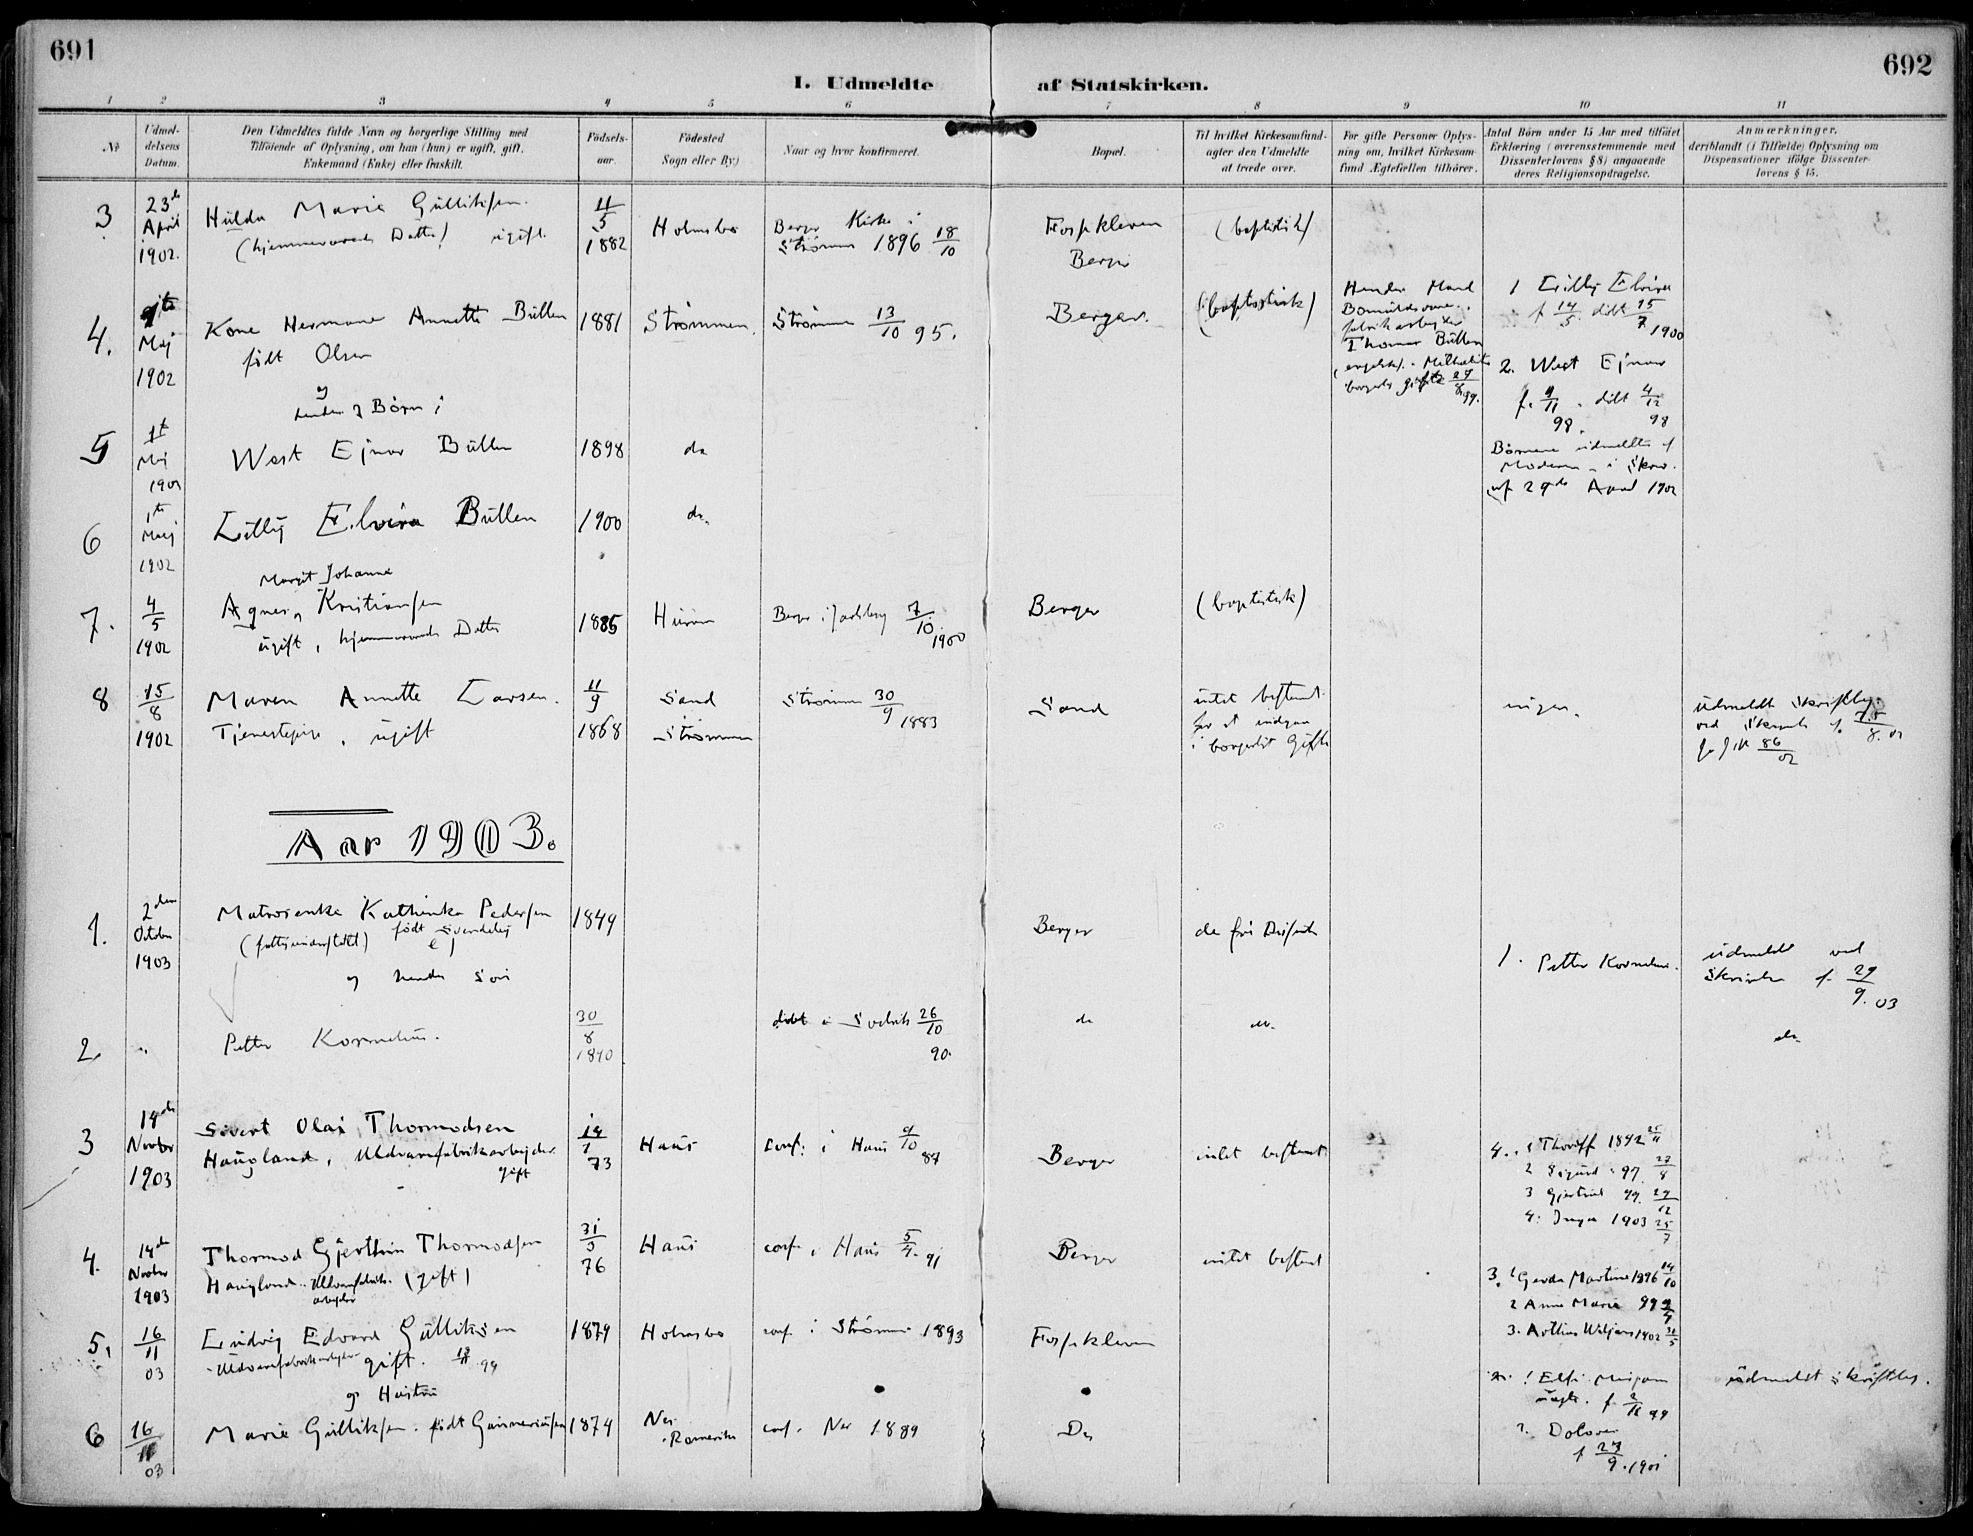 691
692
I. Udmeldte af Statskirken.
1 2 3 4 5 6 7 8 9 10 11
№
Udmel-
delsens
Datum.
Den Udmeldtes fulde Navn og borgerlige Stilling med
Tilføiende af Oplysning, om han (hun) er ugift, gift,
Enkemand (Enke) eller fraskilt.
Fødsels-
aar.
Fødested
Sogn eller By)
Naar og hvor konfirmeret.
Bopæl.
Til hvilket Kirkesamfund-
agter den Udmeldte
at træde over.
For gifte Personer Oplys-
ning om, hvilket Kirkesam-
fund Ægtefællen tilhører.
Antal Børn under 15 Aar med tilføiet
Erklæring (overensstemmende med
Dissenterlovens § 8) angaaende
deres Religionsopdragelse.
Anmærkninger,
deriblandt (i Tilfælde) Oplysning om
Dispensationer ifølge Dissenter-
lovens § 15.
3
23de
April
1902.
Hulda Marie Gulliksen.
(hjemmeværende Datter) ugift.
11/5
1882
Holmsbo
Berger Kirke i
Strømm 1896 18/10
Fossekleven
Berger
(baptistisk)
4.
Maj
1902
Kone Hermane Annette Bullen
født Olsen
og
hendes 2 Børn ;
1881
Strømmen.
Strømm 13/10 95.
Berger.
(baptistisk)
Hendes Mand
fabrikarbejder
Thomas Bullen
borgerl. gifte 27/8 99.
1 Lilly Elvira
f 14/5. døbt 15/7 1900
2. West Ejnar
f. 9/11 98. døbt 4/12 98
Børnene udmeldte af
Moderen i Skriv.
af 29de April 1902
5
1st
Maj
1902
West Ejnar Bullen
1898
do
6
1ste
Maj
1902
Lilly Elvira Bullen
1900
do.
7.
4/5
1902
Margit Johanne
Agnes Kristiansen
ugift, hjemmeværende Datter
1885
Hurum
Berger i Jarlsberg 7/10. 1900
Berger
(baptistisk)
8
15/8
1902
Maren Annette Larsen.
Tjenestepige, ugift
11/9
1868
Sand
Strømmen
Strømm 30/9 1883
Sand
intet bestemt
for at indgaa
i borgerligt Gifte
ingen.
udmeldt Skriftlig
ved Skriv. f. 15/8. 02
86/02
Aar 1903.
1.
2den
October
1903
Matrosenke Kathinka Pedersen
(fattigunderstøttet) født Svendsby
og hendes Søn
1849
Berger
de fri Dissent
1. Petter Kornelius.
udmeldt ved
Skrivelse f. 29/9. 03
2.
Petter Kornelius.
30/8
1890
døbt i Svelvik 26/10 90.
do
do.
do.
3
14de
Novbr
1903
Sivert Olai Thormodsen
Haugland, Uldvarefabrikarbejder.
gift
73
Haus
conf. i Haus 9/10 87
Berger
intet bestemt
4.. 1 Thorleif 1892
2 Sigurd 97. 27/8
3 Gjertrud 99. 29/12
4. Inga 1903 25/7
4.
14de
Novbr
1903
Thormod Gjerthin Thormodsen
Haugland. Uldvarefabrik- (gift)
arbejder
31/3
76
Haus
conf. i Haus 5/4. 91
Berger
intet bestemt
3. 1 Gerda Martine 1896 14/10
2 Anna Marie 99
3. Arthur Wiljam 1902 31/5
5.
16/11
03
Ludvig Edvard Gulliksen
Uldvarefabrikarbejder gift. 99
og Hustru
1879
Holmsbo
conf i Strømm 1893
Fossekleven
2. 1 Elfi Mirjam
f. 2/11 99
udmeldt skriftlig.
6
16/11
03
Marie Gulliksen. født Gunneriusen
1874
Nes
Romerike
conf. Nes 1889
Do
2. Dolores
f 27/9. 1901